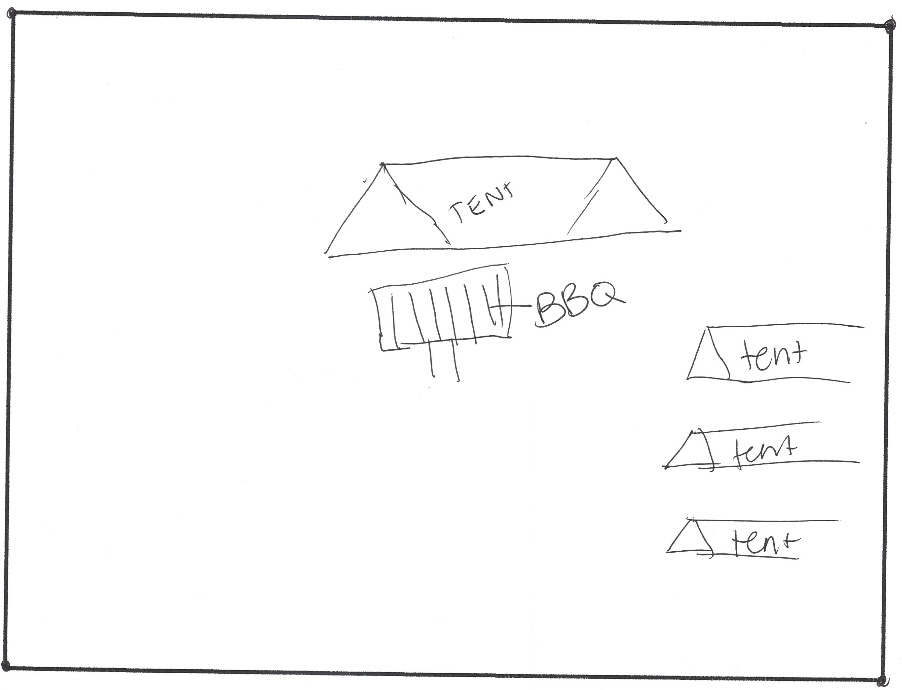 TENT
BBQ
tent
tent
tent